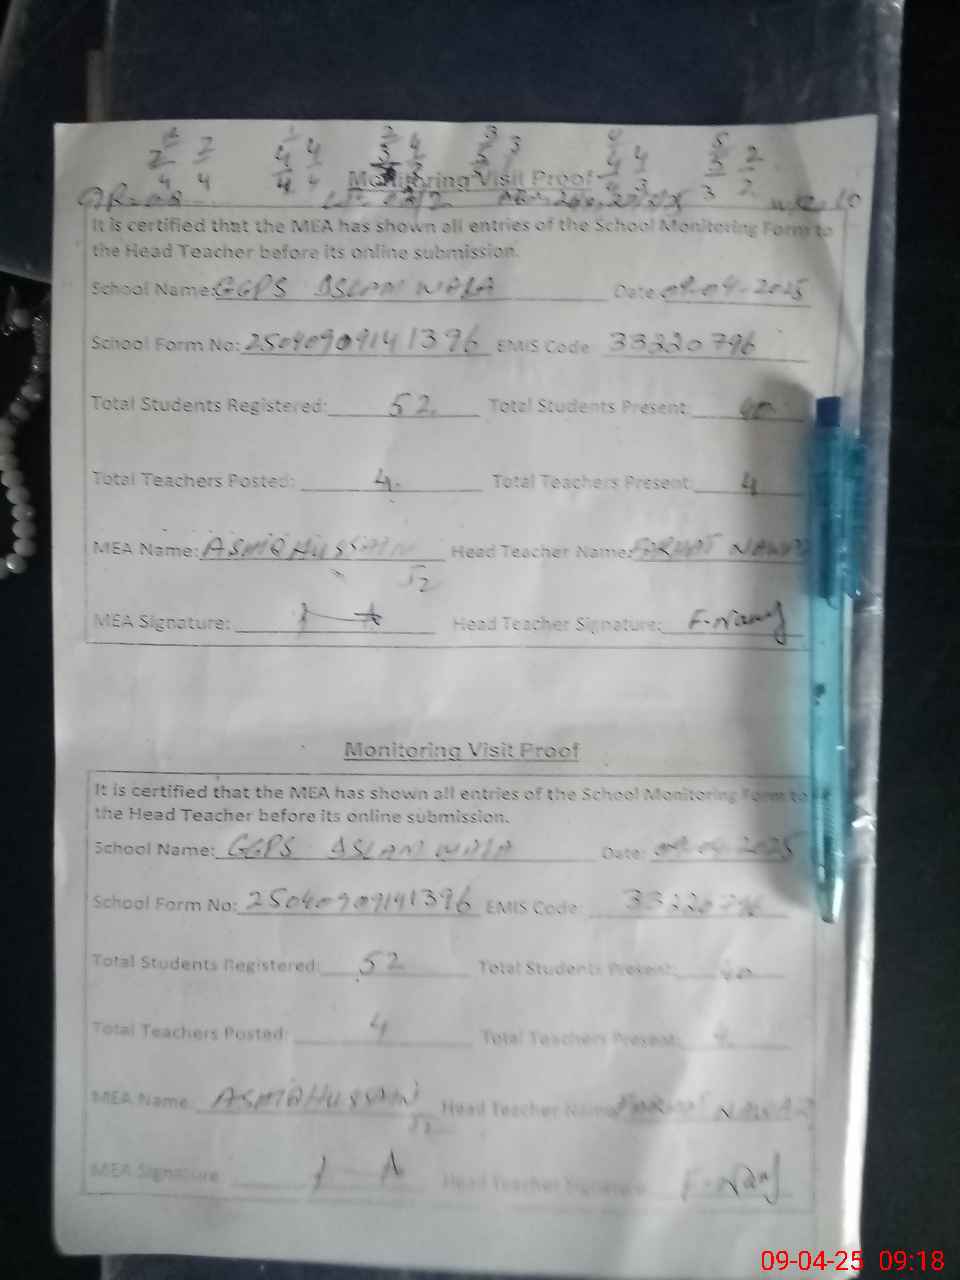 2 2 1 4 2 4 3 3 4 4 5 2
Monitoring Visit Proof
It is certified that the MEA has shown all entries of the School Monitoring Form to
the Head Teacher before its online submission.
School Name: GGPS ASLAM WALA Date: 09.04.2025
School Form No: 25040909141396 EMIS Code: 33220796
Total Students Registered: 52 Total Students Present: 40
Total Teachers Posted: 4. Total Teachers Present: 4
MEA Name: ASHIQ HUSSAIN Head Teacher Name: FARHAT NAWAZ
52
MEA Signature: Head Teacher Signature: F.Nawaz
Monitoring Visit Proof
It is certified that the MEA has shown all entries of the School Monitoring Form to
the Head Teacher before its online submission.
School Name: GGPS ASLAM WALA Date: 09.04.2025
School Form No: 25040909141396 EMIS Code: 33220796
Total Students Registered: 52 Total Students Present: 40
Total Teachers Posted: 4 Total Teachers Present: 4
MEA Name: ASHIQ HUSSAIN Head Teacher Name: FARHAT NAWAZ
52
MEA Signature: Head Teacher Signature: F.Nawaz
09-04-25 09:18